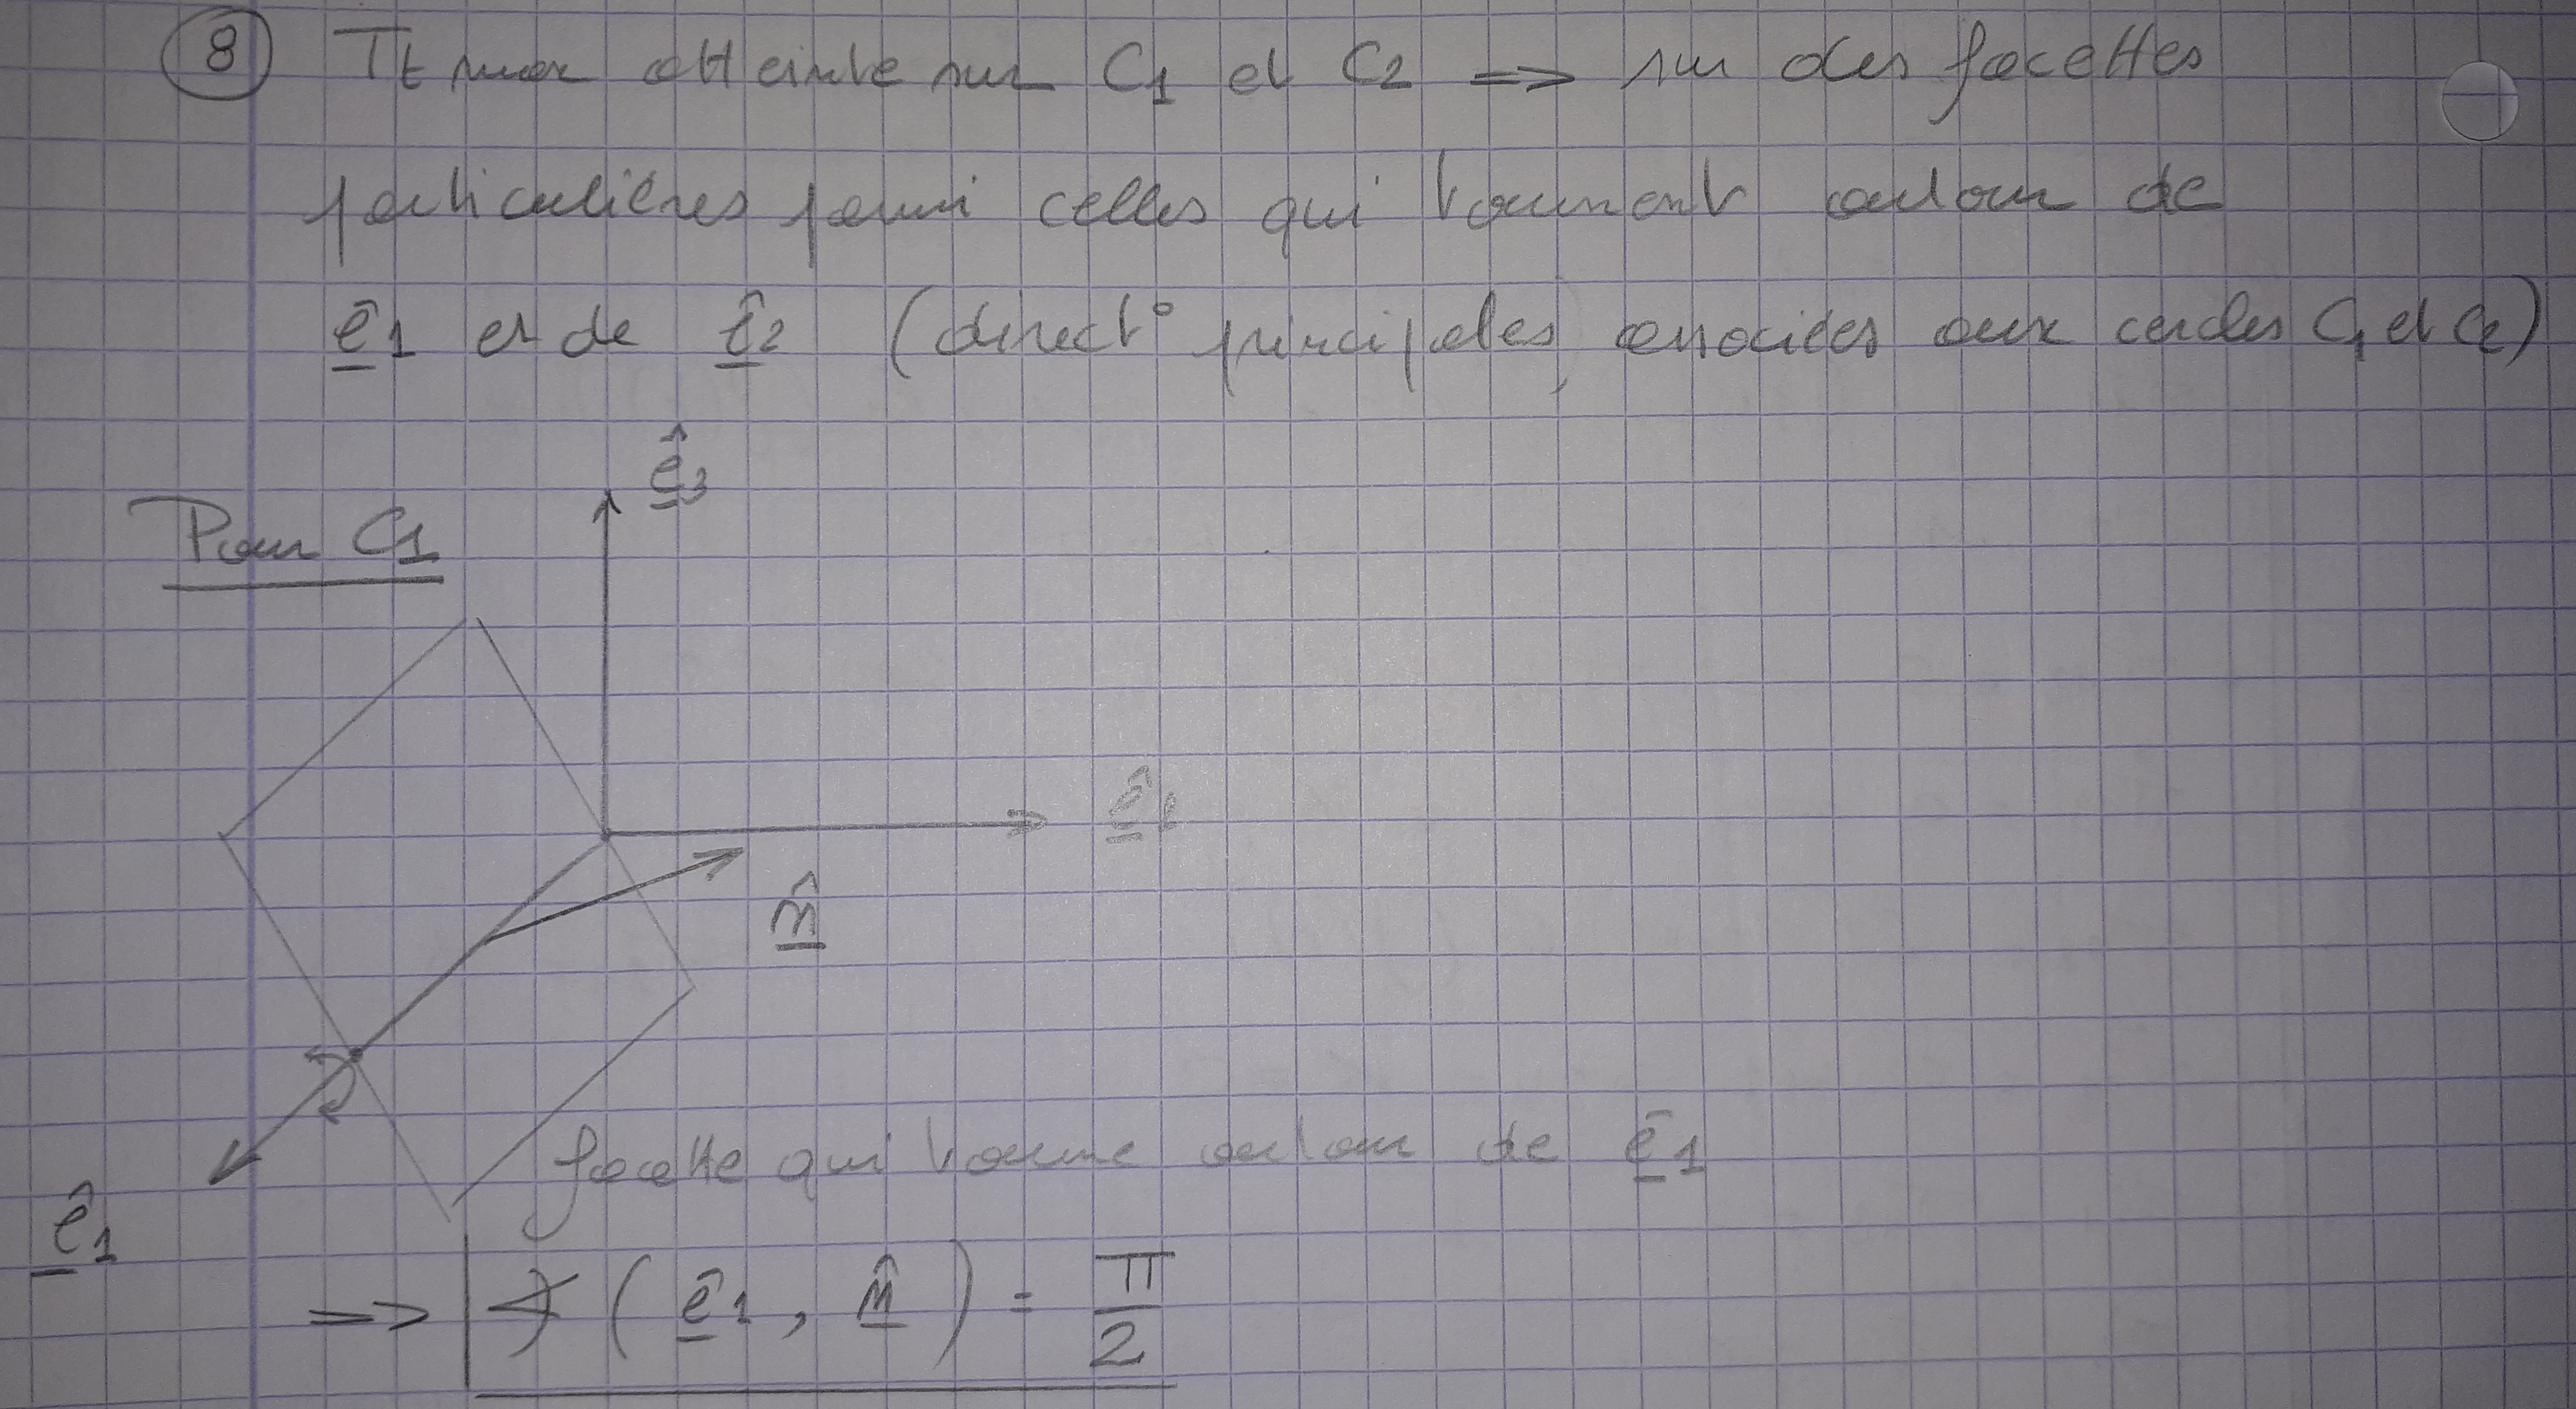 ⑧ Tt max atteinte sur C1 et C2 => sur des facettes
particulières parmi celles qui tournent autour de
ê1 et de ê2 (direct° principales associées aux cercles C1 et C2)
ê3
Pour C1
ê2
n̂
facette qui tourne autour de ê1
ê1
=> ∢ (ê1, n̂) = π/2